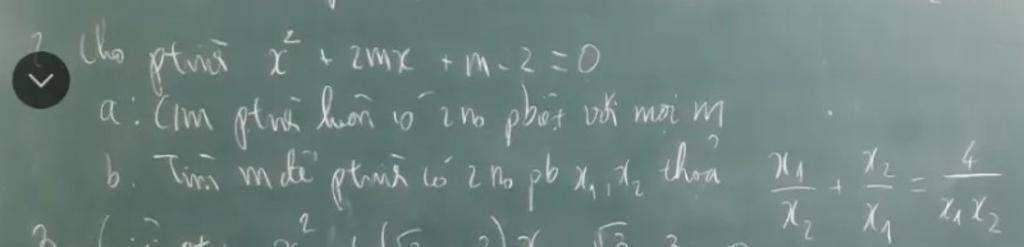 2 Cho ptrình x² + 2mx + m - 2 = 0
a: Cm ptrình luôn có 2 no pbiệt với mọi m
b. Tìm m để ptrình có 2 no pb x₁, x₂ thỏa x₁/x₂ + x₂/x₁ = 4/(x₁x₂)